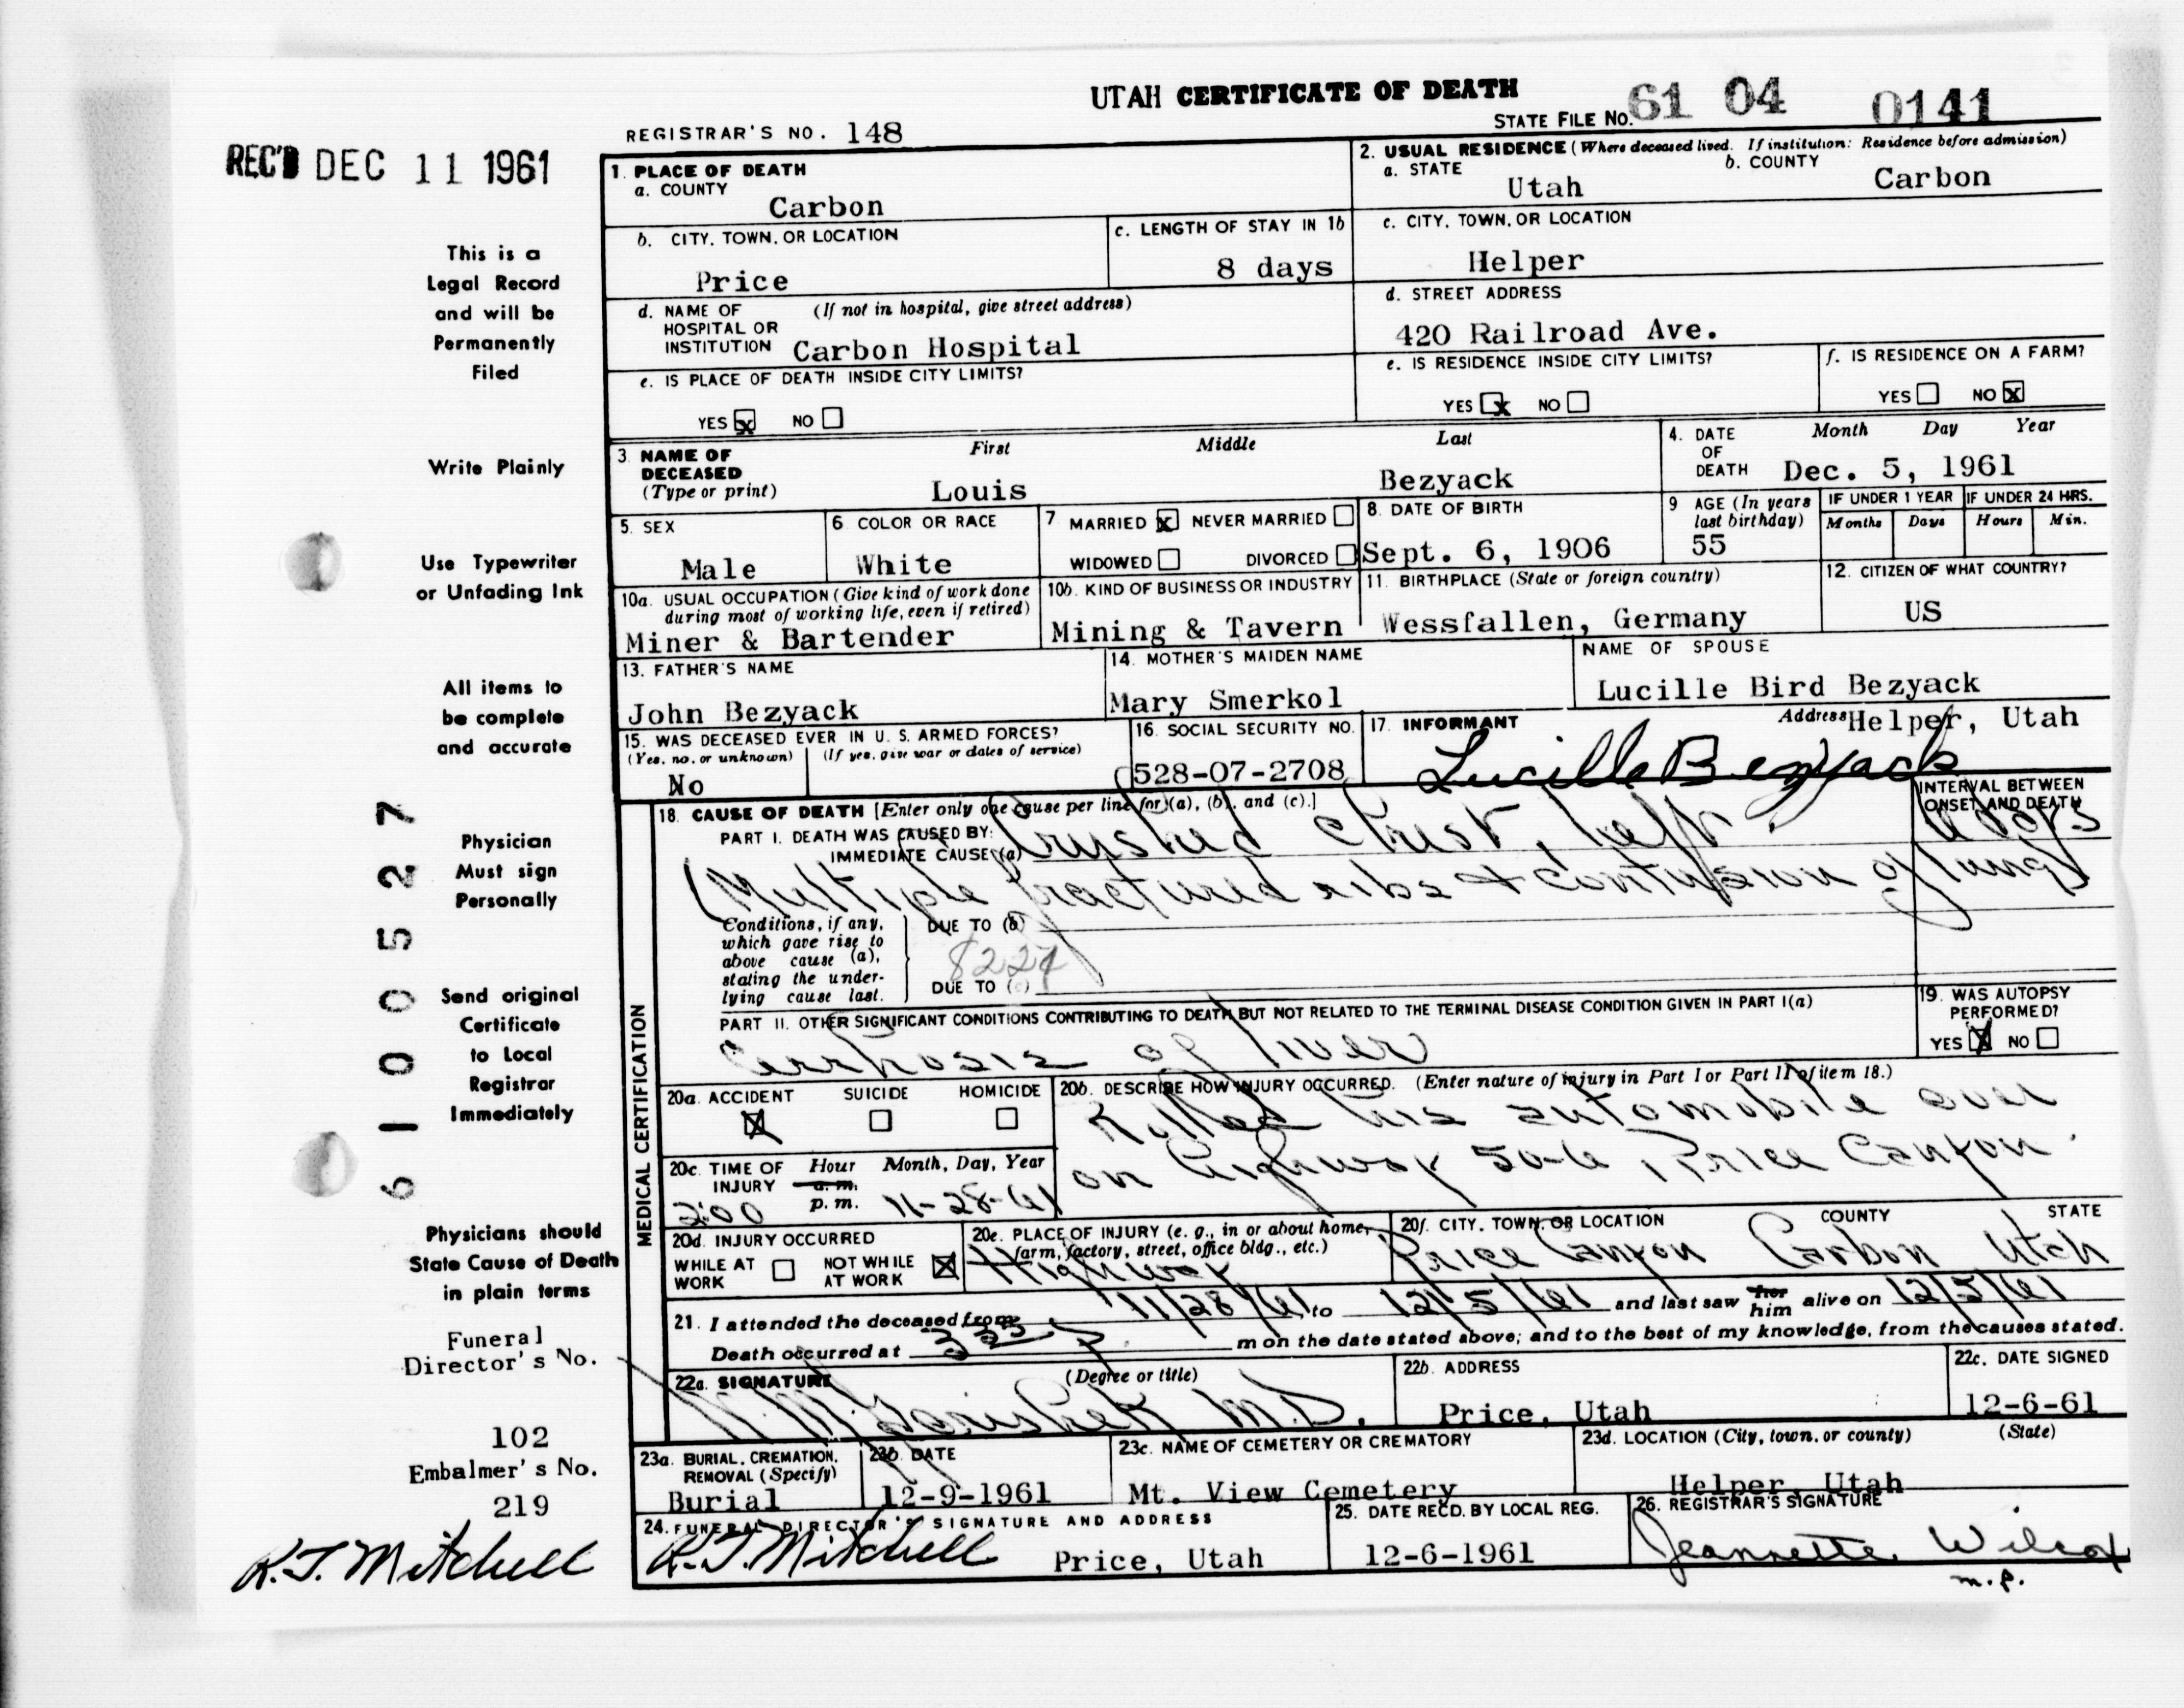 UTAH CERTIFICATE OF DEATH
STATE FILE NO. 61 04 0141
REGISTRAR'S NO. 148
REC'D DEC 11 1961
This is a
Legal Record
and will be
Permanently
Filed
Write Plainly
Use Typewriter
or Unfading Ink
All items to
be complete
and accurate
Physician
Must sign
Personally
Send original
Certificate
to Local
Registrar
Immediately
Physicians should
State Cause of Death
in plain terms
Funeral
Director's No.
102
Embalmer's No.
219
K.T. Mitchell
6 1 0 0 5 5 2 7
1. PLACE OF DEATH
a. COUNTY
Carbon
b. CITY, TOWN, OR LOCATION
Price
c. LENGTH OF STAY IN 1b
8 days
d. NAME OF (If not in hospital, give street address)
HOSPITAL OR
INSTITUTION Carbon Hospital
e. IS PLACE OF DEATH INSIDE CITY LIMITS?
YES X NO
2. USUAL RESIDENCE (Where deceased lived. If institution: Residence before admission)
a. STATE
Utah
b. COUNTY
Carbon
c. CITY, TOWN, OR LOCATION
Helper
d. STREET ADDRESS
420 Railroad Ave.
e. IS RESIDENCE INSIDE CITY LIMITS?
YES X NO
f. IS RESIDENCE ON A FARM?
YES NO X
3. NAME OF
DECEASED
(Type or print)
First Middle Last
Louis Bezyack
4. DATE
OF
DEATH
Month Day Year
Dec. 5, 1961
5. SEX
Male
6. COLOR OR RACE
White
7. MARRIED X NEVER MARRIED
WIDOWED DIVORCED
8. DATE OF BIRTH
Sept. 6, 1906
9 AGE (In years
last birthday)
55
IF UNDER 1 YEAR
Months Days
IF UNDER 24 HRS.
Hours Min.
10a. USUAL OCCUPATION (Give kind of work done
during most of working life, even if retired)
Miner & Bartender
10b. KIND OF BUSINESS OR INDUSTRY
Mining & Tavern
11. BIRTHPLACE (State or foreign country)
Wessfallen, Germany
12. CITIZEN OF WHAT COUNTRY?
US
13. FATHER'S NAME
John Bezyack
14. MOTHER'S MAIDEN NAME
Mary Smerkol
NAME OF SPOUSE
Lucille Bird Bezyack
15. WAS DECEASED EVER IN U. S. ARMED FORCES?
(Yes, no, or unknown) (If yes, give war or dates of service)
No
16. SOCIAL SECURITY NO.
528-07-2708
17. INFORMANT
Address Helper, Utah
Lucille Bezyack
MEDICAL CERTIFICATION
18. CAUSE OF DEATH [Enter only one cause per line for (a), (b), and (c).]
PART I. DEATH WAS CAUSED BY:
IMMEDIATE CAUSE (a) Crushed Chest, left
Multiple fractured ribs & contusion of lung
INTERVAL BETWEEN
ONSET AND DEATH
days
Conditions, if any,
which gave rise to
above cause (a),
stating the under-
lying cause last.
DUE TO (b)
DUE TO (c)
PART II. OTHER SIGNIFICANT CONDITIONS CONTRIBUTING TO DEATH BUT NOT RELATED TO THE TERMINAL DISEASE CONDITION GIVEN IN PART I(a)
Cirrhosis of liver
19. WAS AUTOPSY
PERFORMED?
YES X NO
20a. ACCIDENT SUICIDE HOMICIDE
X
20b. DESCRIBE HOW INJURY OCCURRED. (Enter nature of injury in Part I or Part II of item 18.)
Rolled his automobile over
on highway 50-6 Price Canyon.
20c. TIME OF
INJURY
Hour Month, Day, Year
a. m.
p. m.
2:00 11-28-61
20d. INJURY OCCURRED
WHILE AT
WORK
NOT WHILE
AT WORK X
20e. PLACE OF INJURY (e. g., in or about home,
farm, factory, street, office bldg., etc.)
Highway
20f. CITY, TOWN, OR LOCATION COUNTY STATE
Price Canyon Carbon Utah
21. I attended the deceased from 11/28/61 to 12/5/61 and last saw her him alive on 12/5/61
Death occurred at 3 35 P m on the date stated above; and to the best of my knowledge, from the causes stated.
22a. SIGNATURE (Degree or title)
M.D.
22b. ADDRESS
Price, Utah
22c. DATE SIGNED
12-6-61
23a. BURIAL, CREMATION,
REMOVAL (Specify)
Burial
23b. DATE
12-9-1961
23c. NAME OF CEMETERY OR CREMATORY
Mt. View Cemetery
23d. LOCATION (City, town, or county) (State)
Helper, Utah
24. FUNERAL DIRECTOR'S SIGNATURE AND ADDRESS
K.T. Mitchell Price, Utah
25. DATE RECD. BY LOCAL REG.
12-6-1961
26. REGISTRAR'S SIGNATURE
Jeannette Wilcox
m.p.